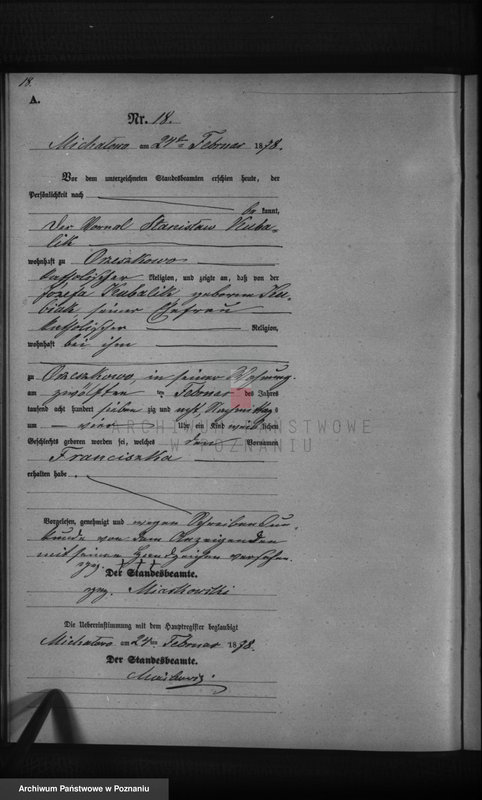 18.
A.
Nr. 18.
Michalowo am 24ten Februar 1878.
Vor dem unterzeichneten Standesbeamten erschien heute, der
Persönlichkeit nach
be kannt,
Der Kornal Stanislaw Kuba-
lik
wohnhaft zu Orzeszkowo
katholischer Religion, und zeigte an, daß von der
Józefa Kubalik geborene Ku-
biak seiner Ehefrau
katholischer Religion,
wohnhaft bei ihm
zu Orzeszkowo, in seiner Wohnung
am zwölften ten Februar des Jahres
tausend acht hundert sieben zig und acht, Nachmittags
um vier Uhr ein Kind weib lichen
Geschlechts geboren worden sei, welches den Vornamen
Franciszka
erhalten habe.
Vorgelesen, genehmigt und wegen Schreibensun-
kunde von dem Anzeigenden
mit seinen Handzeichen versehen.
gez. +++
Der Standesbeamte.
gez.
Die Uebereinstimmung mit dem Hauptregister beglaubigt
Michalowo am 24ten Februar 1878.
Der Standesbeamte.
ARCHIWUM PAŃSTWOWE
W POZNANIU
Archiwum Państwowe w Poznaniu